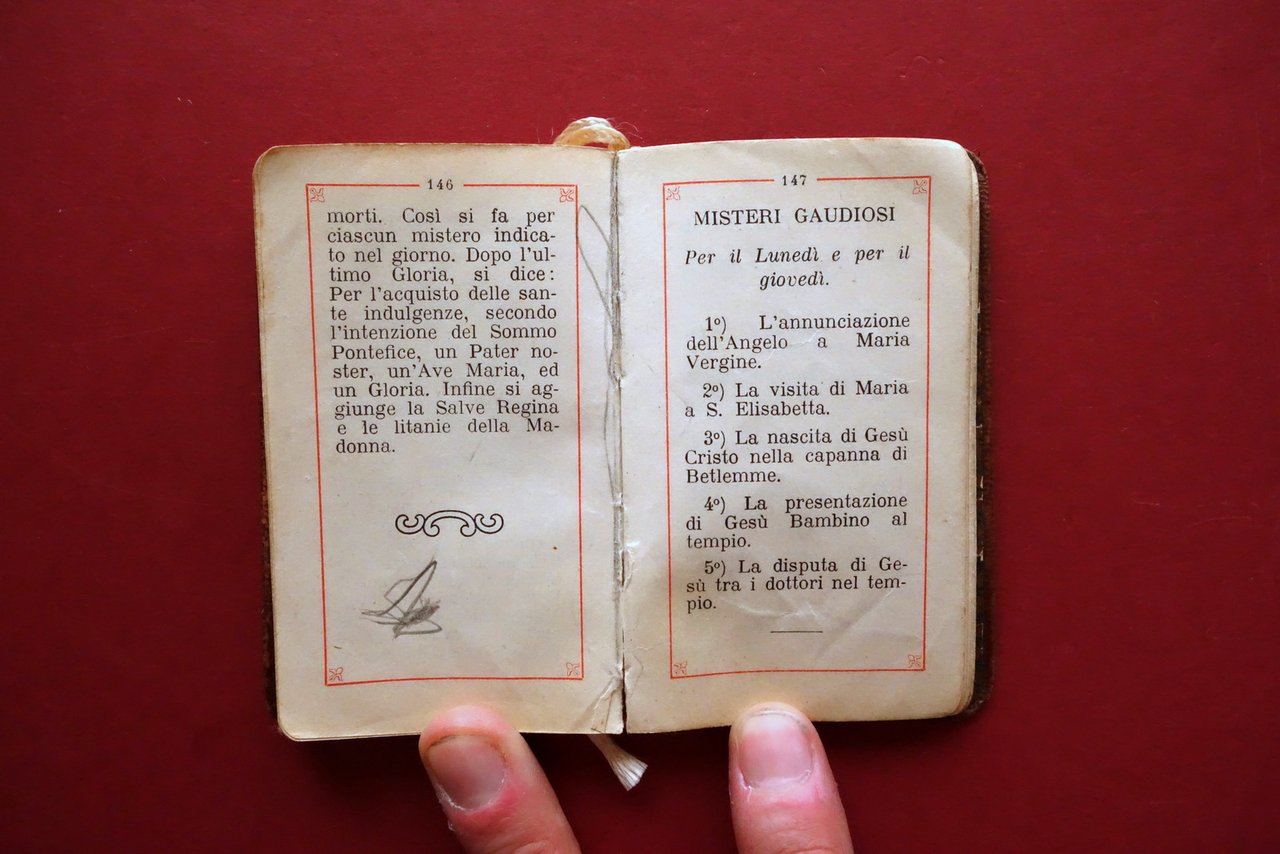 146
morti. Così si fa per
ciascun mistero indica-
to nel giorno. Dopo l'ul-
timo Gloria, si dice:
Per l'acquisto delle san-
te indulgenze, secondo
l'intenzione del Sommo
Pontefice, un Pater no-
ster, un'Ave Maria, ed
un Gloria. Infine si ag-
giunge la Salve Regina
e le litanie della Ma-
donna.
147
MISTERI GAUDIOSI
Per il Lunedì e per il
giovedì.
1º) L'annunciazione
dell'Angelo a Maria
Vergine.
2º) La visita di Maria
a S. Elisabetta.
3º) La nascita di Gesù
Cristo nella capanna di
Betlemme.
4º) La presentazione
di Gesù Bambino al
tempio.
5º) La disputa di Ge-
sù tra i dottori nel tem-
pio.